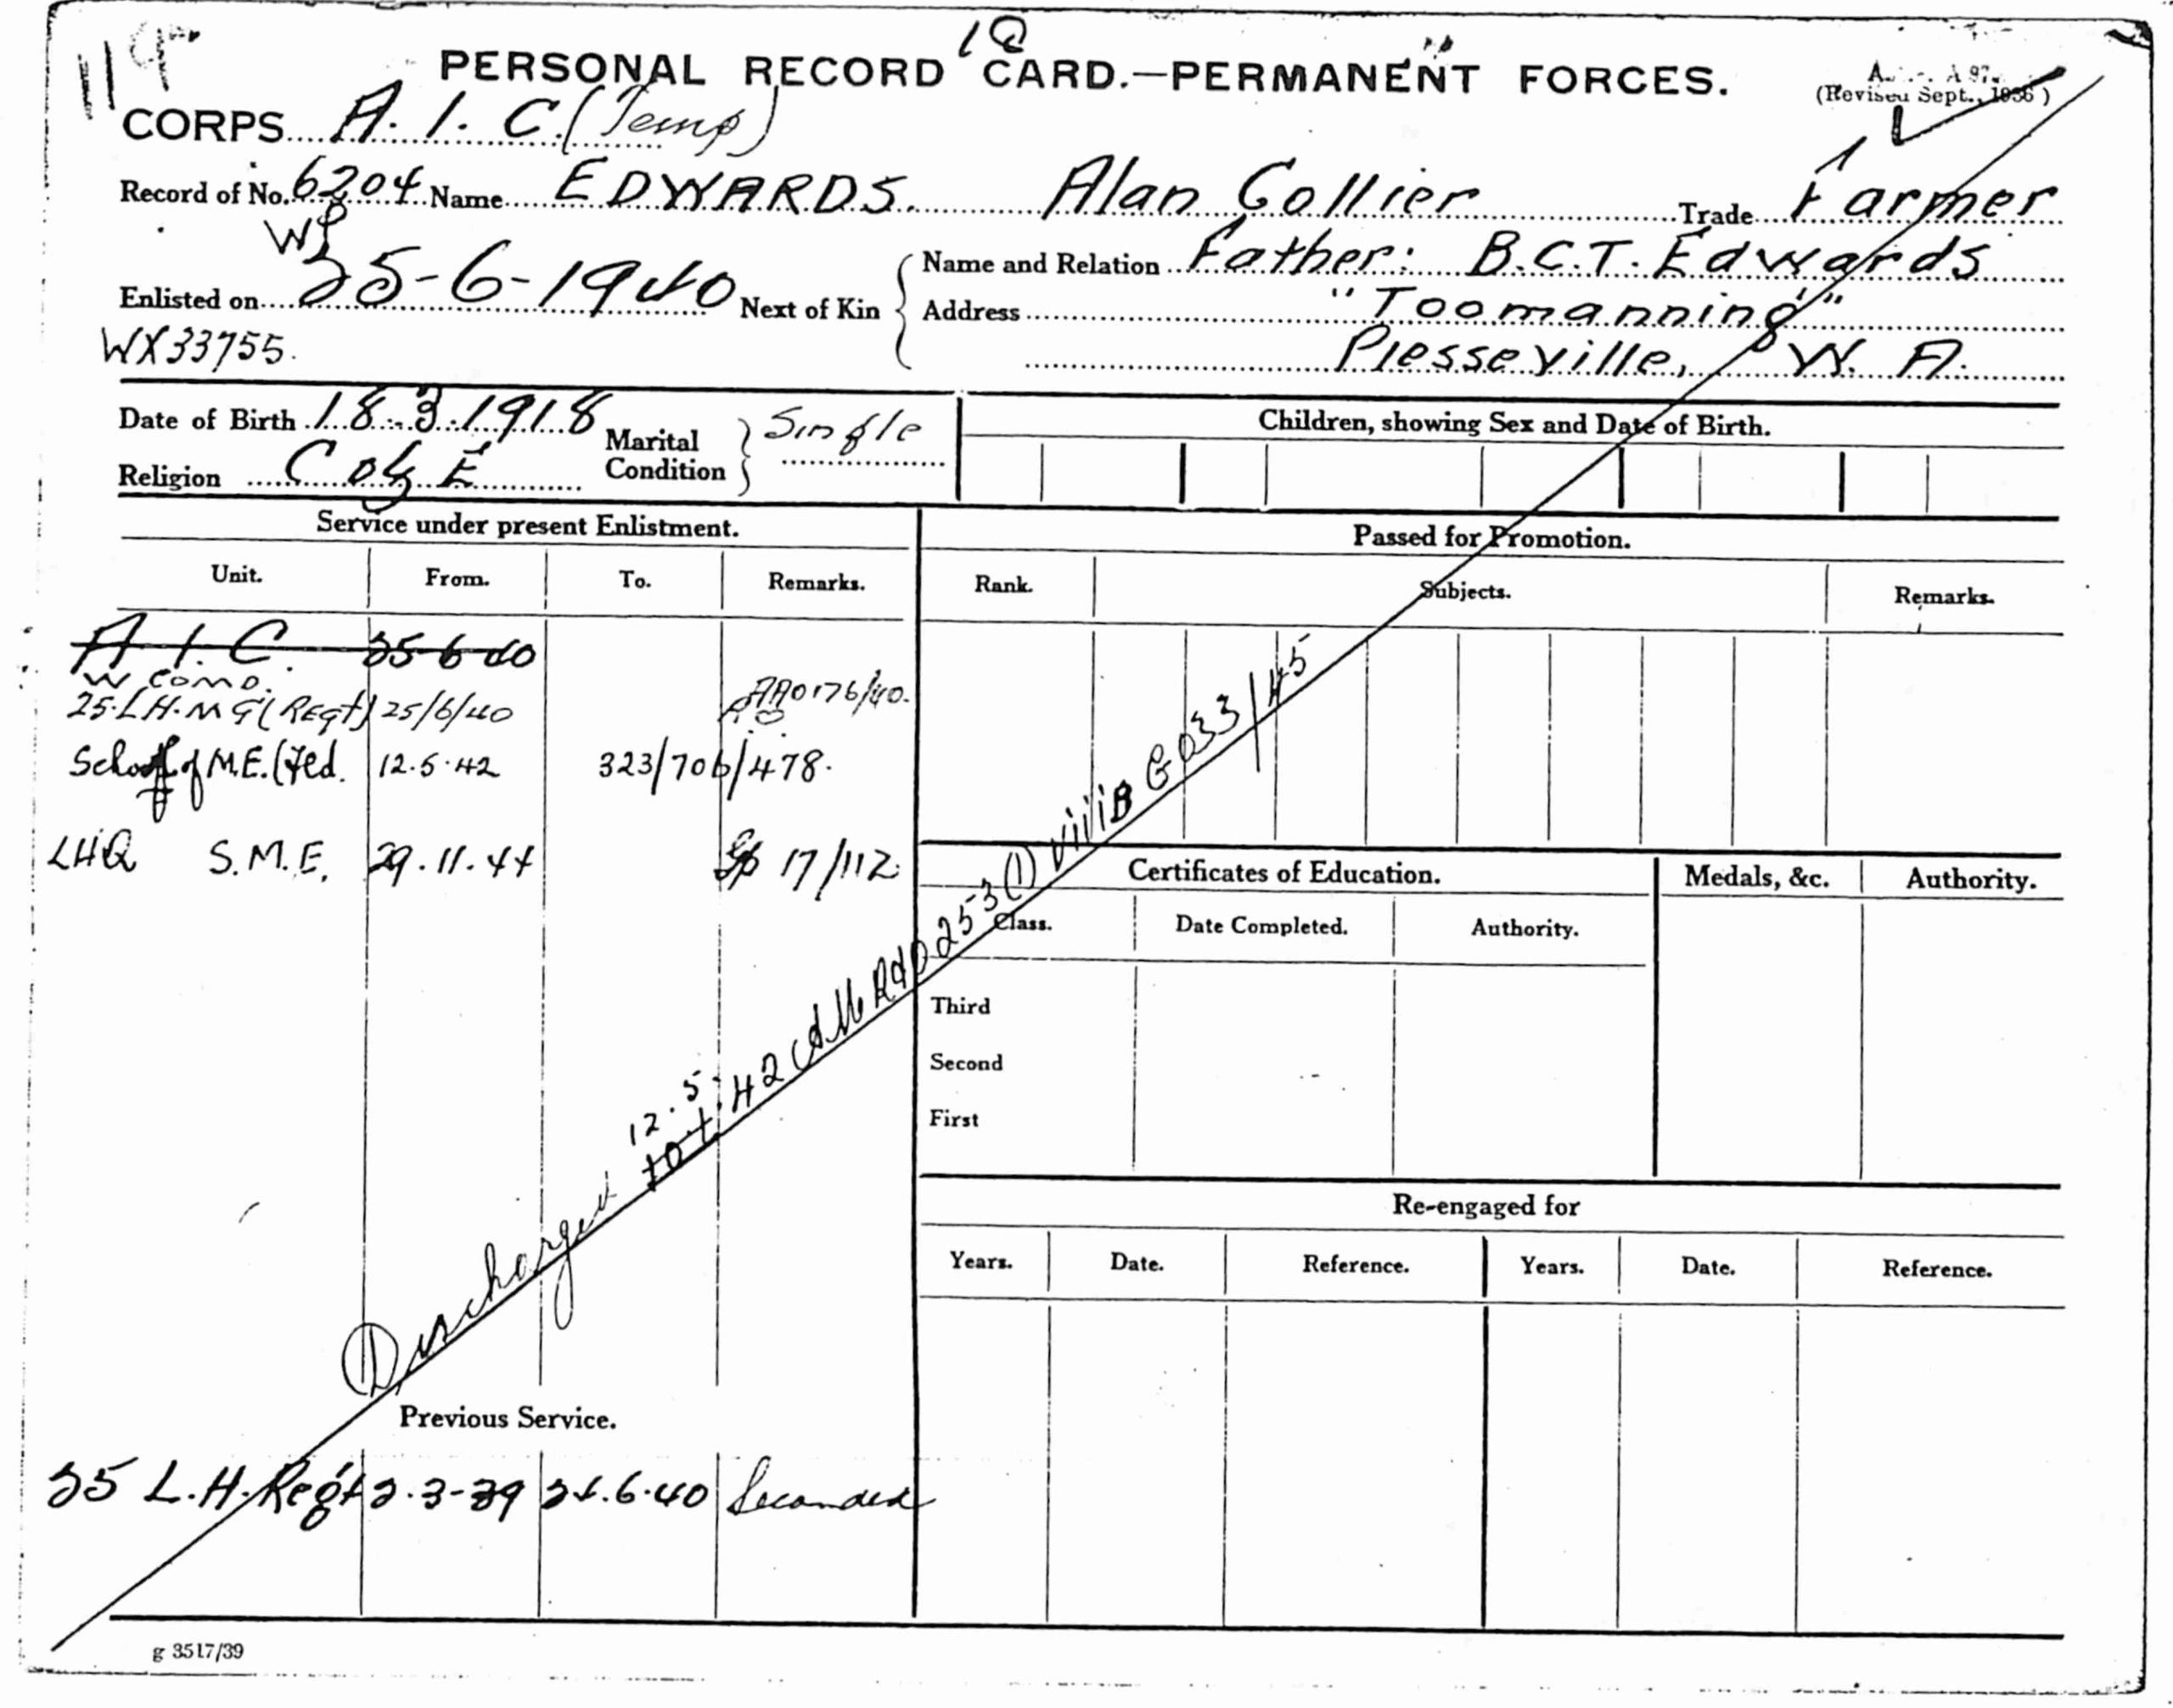 119
1Q
PERSONAL RECORD CARD.—PERMANENT FORCES.
(Revised Sept., 1936)
CORPS A. I. C. (Temp)
Record of No. 6204 Name EDWARDS. Alan Collier Trade Farmer
WP
Enlisted on 25-6-1940 Next of Kin Name and Relation Father: B.C.T. Edwards
Address "Toomanning"
WX33755. Piesseville, W. A.
Date of Birth 18.3.1918 Marital Condition Single Children, showing Sex and Date of Birth.
Religion C of E
Service under present Enlistment. Passed for Promotion.
Unit. From. To. Remarks. Rank. Subjects. Remarks.
A. I. C. 25-6-40
W COMD.
25.L.H.M G (Regt) 25/6/40 AAO176/40.
School of M.E. (Fld. 12.5.42 323/706/478.
LHQ S.M.E. 29.11.44 17/112
Discharged 12.5.42 253(1) viiiB G033/45
Certificates of Education. Medals, &c. Authority.
Class. Date Completed. Authority.
Third
Second
First
Re-engaged for
Years. Date. Reference. Years. Date. Reference.
Previous Service.
25 L.H. Regt 2.3-39 24.6.40 Seconded
g 3517/39